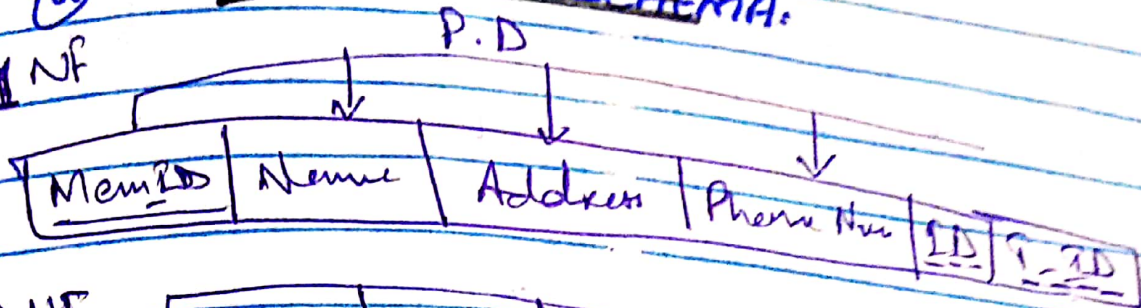 SCHEMA:
P.D
1 NF
MemID Name Address Phone Num ID I_ID
NF